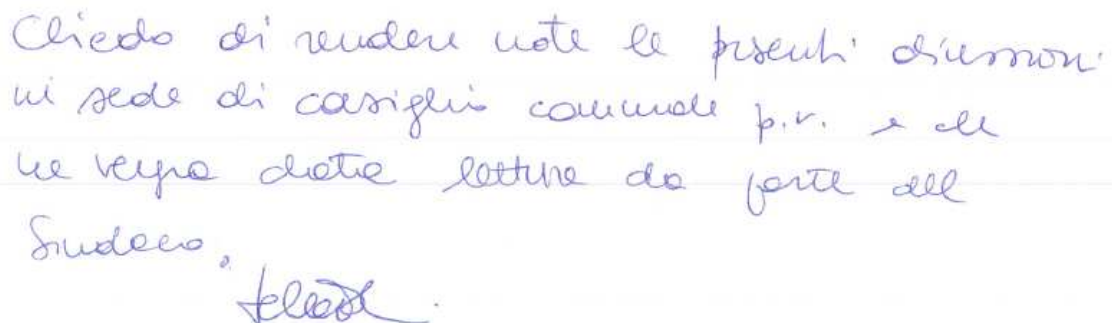 Chiedo di rendere note le presenti dimissioni
in sede di consiglio comunale p.v. e che
ne venga data lettura da parte del
Sindaco.